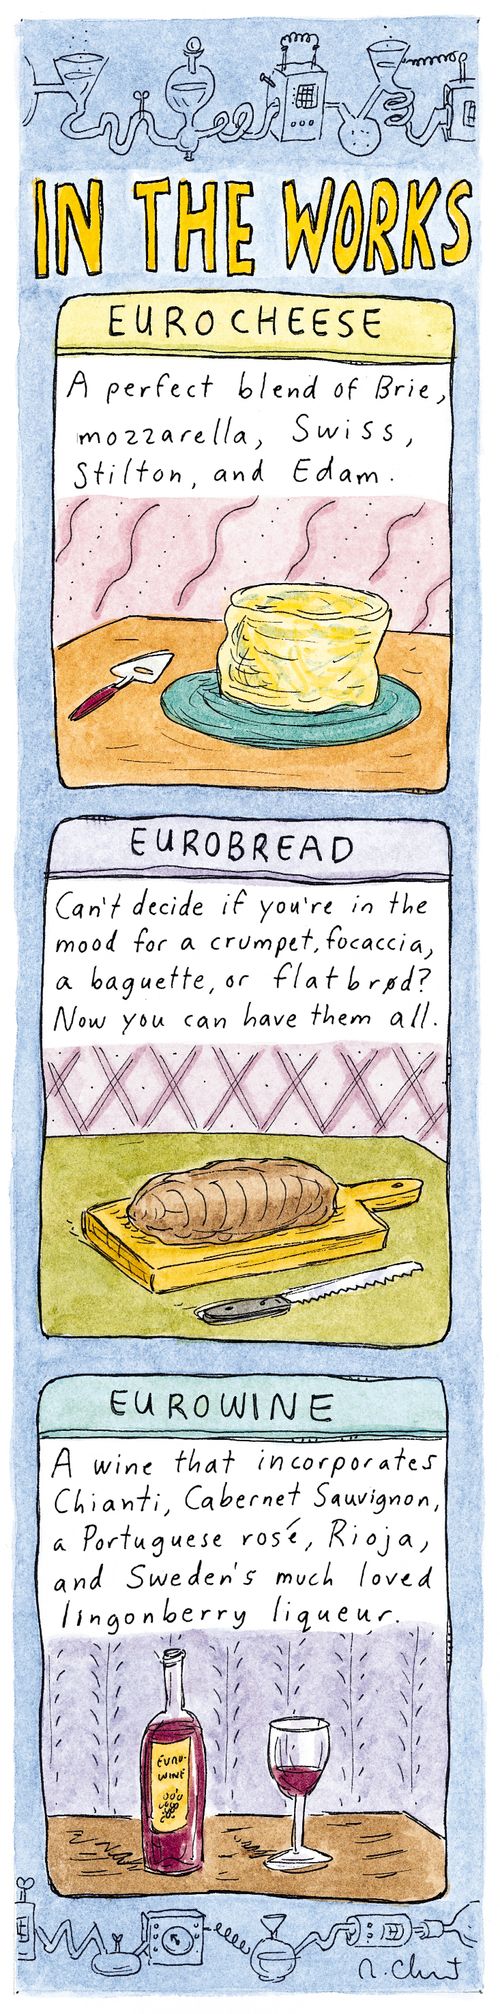 IN THE WORKS
EUROCHEESE
A perfect blend of Brie,
mozzarella, Swiss,
Stilton, and Edam.
EUROBREAD
Can't decide if you're in the
mood for a crumpet, focaccia,
a baguette, or flatbrød?
Now you can have them all.
EUROWINE
A wine that incorporates
Chianti, Cabernet Sauvignon,
a Portuguese rosé, Rioja,
and Sweden's much loved
lingonberry liqueur.
EURO-
WINE
R. Chast